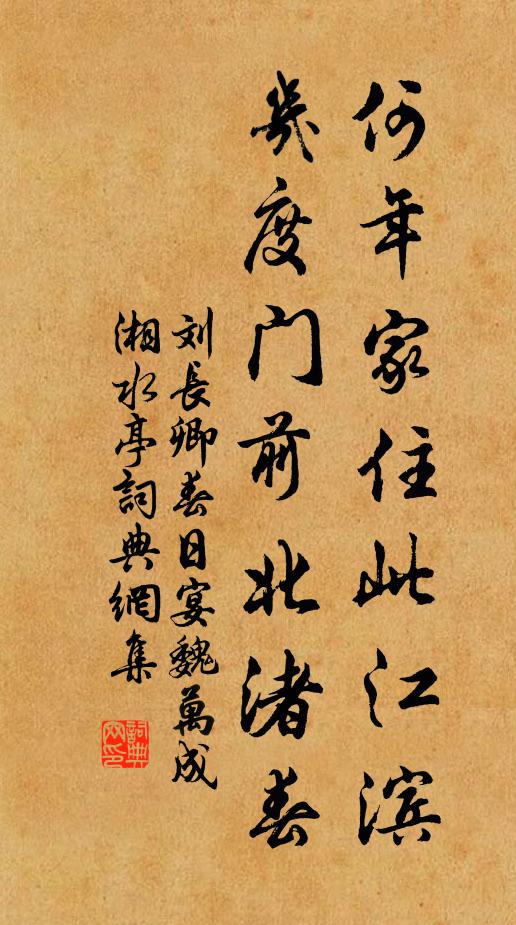 何年家住此江滨
幾度门前北渚春
刘長卿春日宴魏萬成
湘水亭詞典網集
詞典网印